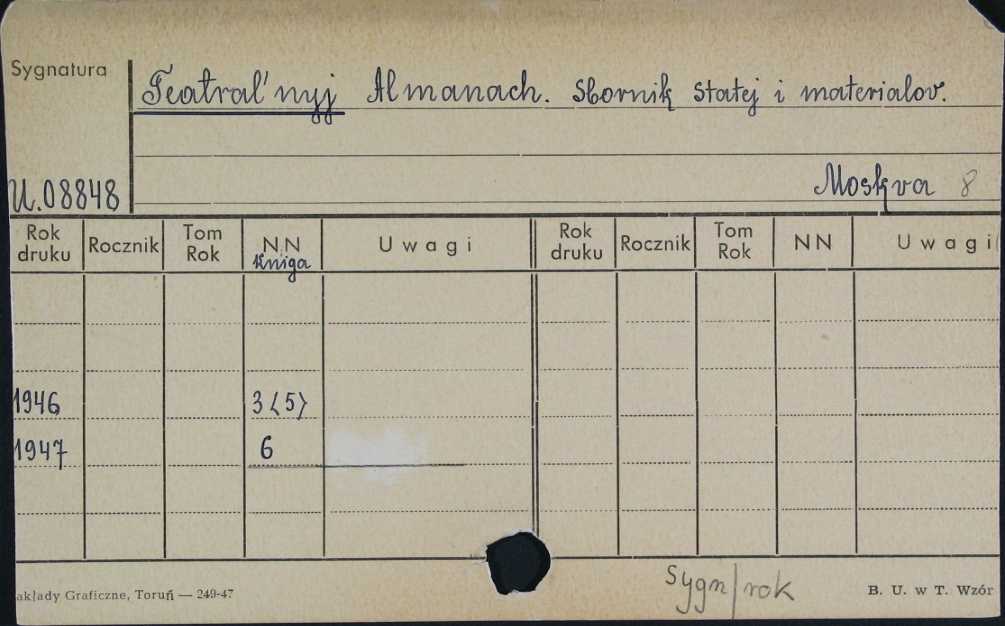 Sygnatura
Teatral'nyj Almanach. Sbornik statej i materialov.
U.08848
Moskva 8
Rok druku Rocznik Tom Rok NN Kniga Uwagi Rok druku Rocznik Tom Rok NN Uwagi
1946 3〈5〉
1947 6
akłady Graficzne, Toruń — 249-47
sygn/rok
B. U. w T. Wzór